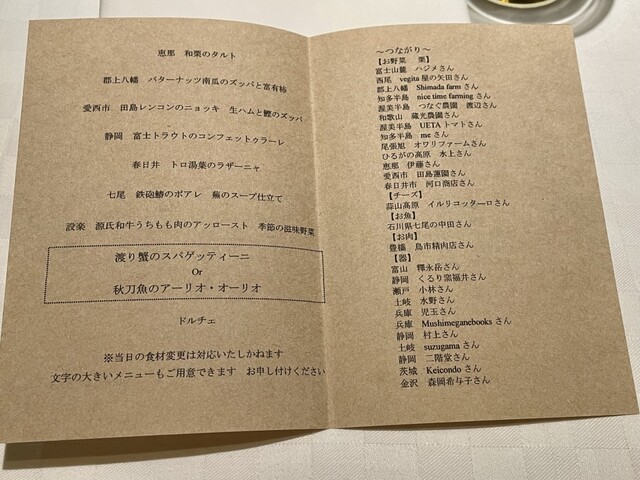 恵那　和栗のタルト
郡上八幡　バターナッツ南瓜のズッパと富有柿
愛西市　田島レンコンのニョッキ　生ハムと鰹のズッパ
静岡　富士トラウトのコンフェットゥラーレ
春日井　トロ湯葉のラザーニャ
七尾　鉄砲鰆のポアレ　蕪のスープ仕立て
設楽　源氏和牛うちもも肉のアッロースト　季節の滋味野菜
渡り蟹のスパゲッティーニ
Or
秋刀魚のアーリオ・オーリオ
ドルチェ
※当日の食材変更は対応いたしかねます
文字の大きいメニューもご用意できます　お申し付けください
～つながり～
【お野菜　栗】
富士山麓　ハジメさん
西尾　vegita屋の矢田さん
郡上八幡　Shimada farmさん
知多半島　nice time farmingさん
渥美半島　つなぐ農園　渡辺さん
和歌山　蔵光農園さん
渥美半島　UETAトマトさん
知多半島　meさん
尾張旭　オワリファームさん
ひるがの高原　水上さん
恵那　伊藤さん
愛西市　田島蓮園さん
春日井市　河口商店さん
【チーズ】
蒜山高原　イルリコッターロさん
【お魚】
石川県七尾の中田さん
【お肉】
豊橋　鳥市精肉店さん
【器】
富山　釋永岳さん
静岡　くるり窯福井さん
瀬戸　小林さん
土岐　水野さん
兵庫　児玉さん
兵庫　Mushimeganebooksさん
静岡　村上さん
土岐　suzugamaさん
静岡　二階堂さん
茨城　Keicondoさん
金沢　森岡希与子さん